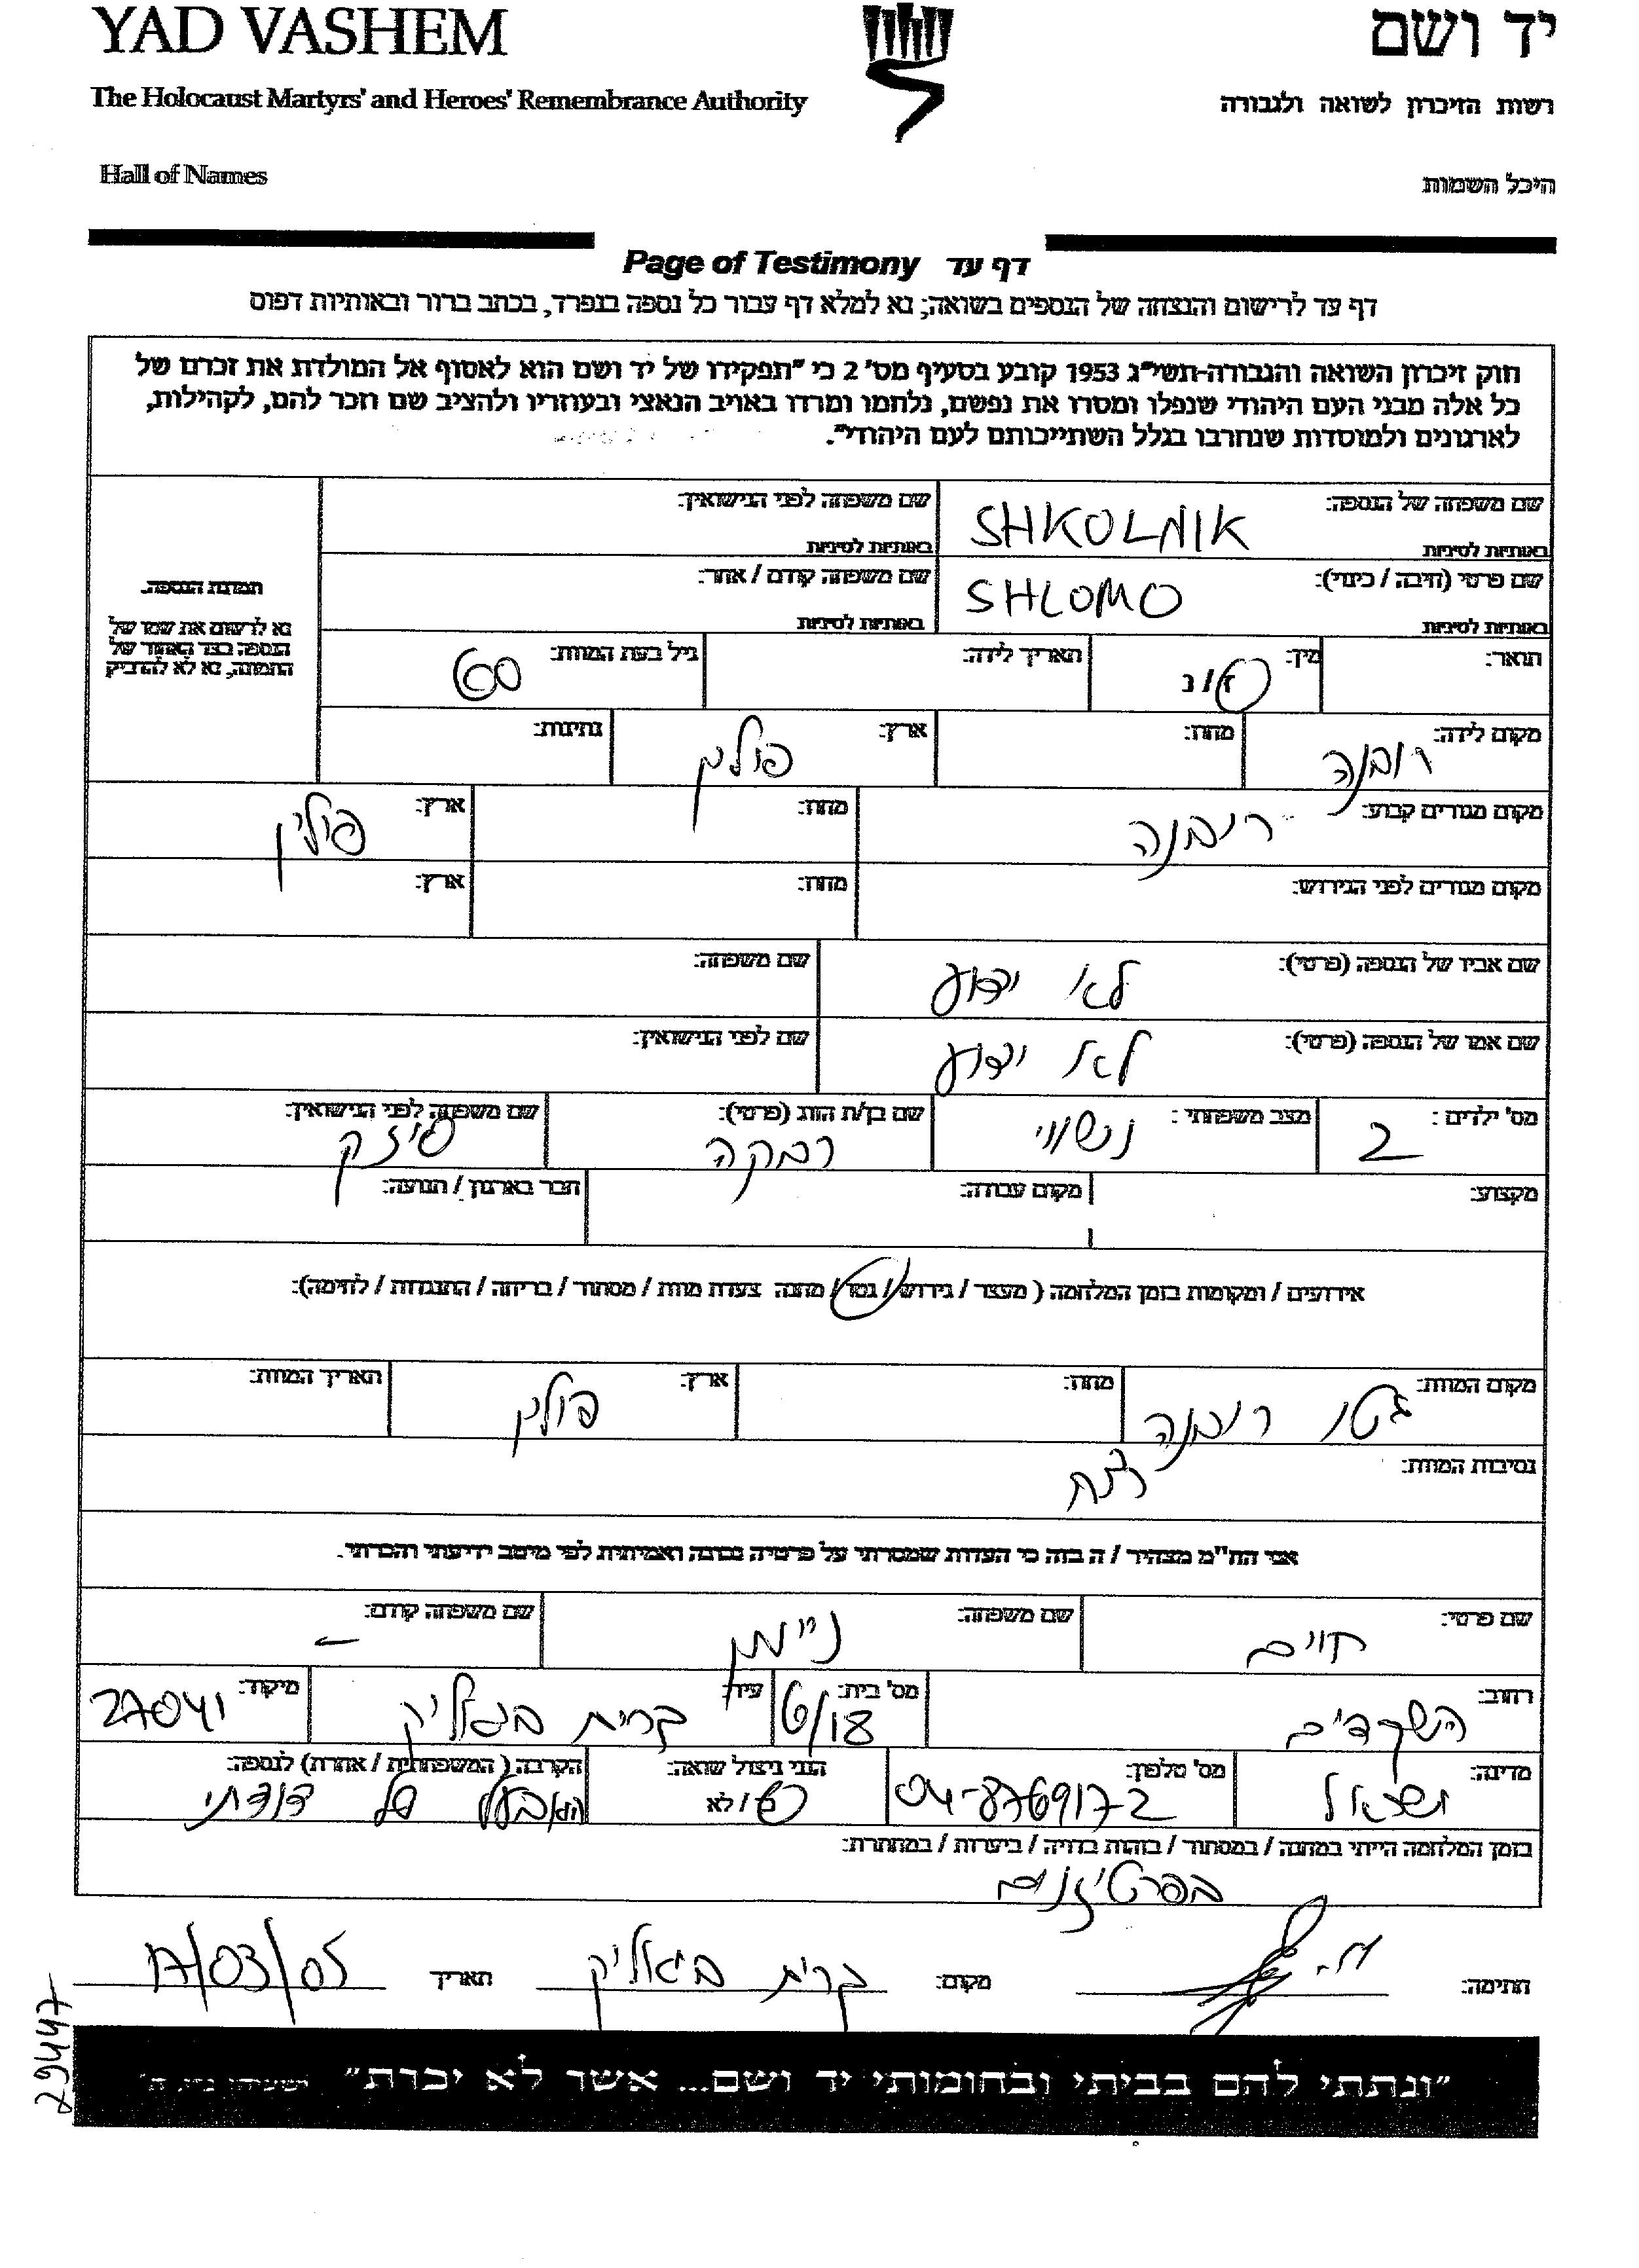 YAD VASHEM יד ושם
The Holocaust Martyrs' and Heroes' Remembrance Authority רשות הזיכרון לשואה ולגבורה
Hall of Names היכל השמות
Page of Testimony דף עד
דף עד לרישום והנצחה של הנספים בשואה; נא למלא דף עבור כל נספה בנפרד, בכתב ברור ובאותיות דפוס
חוק זיכרון השואה והגבורה-תשי"ג 1953 קובע בסעיף מס' 2 כי "תפקידו של יד ושם הוא לאסוף אל המולדת את זכרם של
כל אלה מבני העם היהודי שנפלו ומסרו את נפשם, נלחמו ומרדו באויב הנאצי ובעוזריו ולהציב שם וזכר להם, לקהילות,
לארגונים ולמוסדות שנחרבו בגלל השתייכותם לעם היהודי".
שם משפחה של הנספה: SHKOLNIK שם משפחה לפני הנישואין:
באותיות לטיניות באותיות לטיניות
שם פרטי (חיבה / כינוי): SHLOMO שם משפחה קודם / אחר:
באותיות לטיניות באותיות לטיניות
תמונת הנספה.
נא לרשום את שמו של
הנספה בצד האחור של
התמונה, נא לא להדביק
תואר: מין: ז / נ תאריך לידה: גיל בעת המוות: 60
מקום לידה: רובנה מחוז: ארץ: פולין נתינות:
מקום מגורים קבוע: רובנה מחוז: ארץ: פולין
מקום מגורים לפני הגירוש: מחוז: ארץ:
שם אביו של הנספה (פרטי): לא ידוע שם משפחה:
שם אמו של הנספה (פרטי): לא ידוע שם לפני הנישואין:
מס' ילדים: 2 מצב משפחתי: נשוי שם בן/ת הזוג (פרטי): רבקה שם משפחה לפני הנישואין:
מקצוע: מקום עבודה: חבר בארגון / תנועה:
אירועים / ומקומות בזמן המלחמה ( מעצר / גירוש / גטו / מחנה צעדת מוות / מסתור / בריחה / התנגדות / לחימה):
מקום המוות: גטו רובנה מחוז: ארץ: פולין תאריך המוות:
נסיבות המוות: רצח
אני הח"מ מצהיר / ה בזה כי העדות שמסרתי על פרטיה נכונה ואמיתית לפי מיטב ידיעתי והכרתי.
שם פרטי: חיים שם משפחה: ניימן שם משפחה קודם: –
רחוב: השקדים מס' בית: 6/18 עיר: קרית ביאליק מיקוד: 27041
מדינה: ישראל מס' טלפון: 04-8769172 הנני ניצול שואה: כן / לא הקרבה ( המשפחתית / אחרת) לנספה: בעלה של דודתי
בזמן המלחמה הייתי במחנה / במסתור / בזהות בדויה / ביערות / במחתרת:
בפרטיזנים
חתימה: מקום: קרית ביאליק תאריך 17/03/05
"ונתתי להם בביתי ובחומותי יד ושם... אשר לא יכרת" ישעיהו נ"ו, ה'
299447